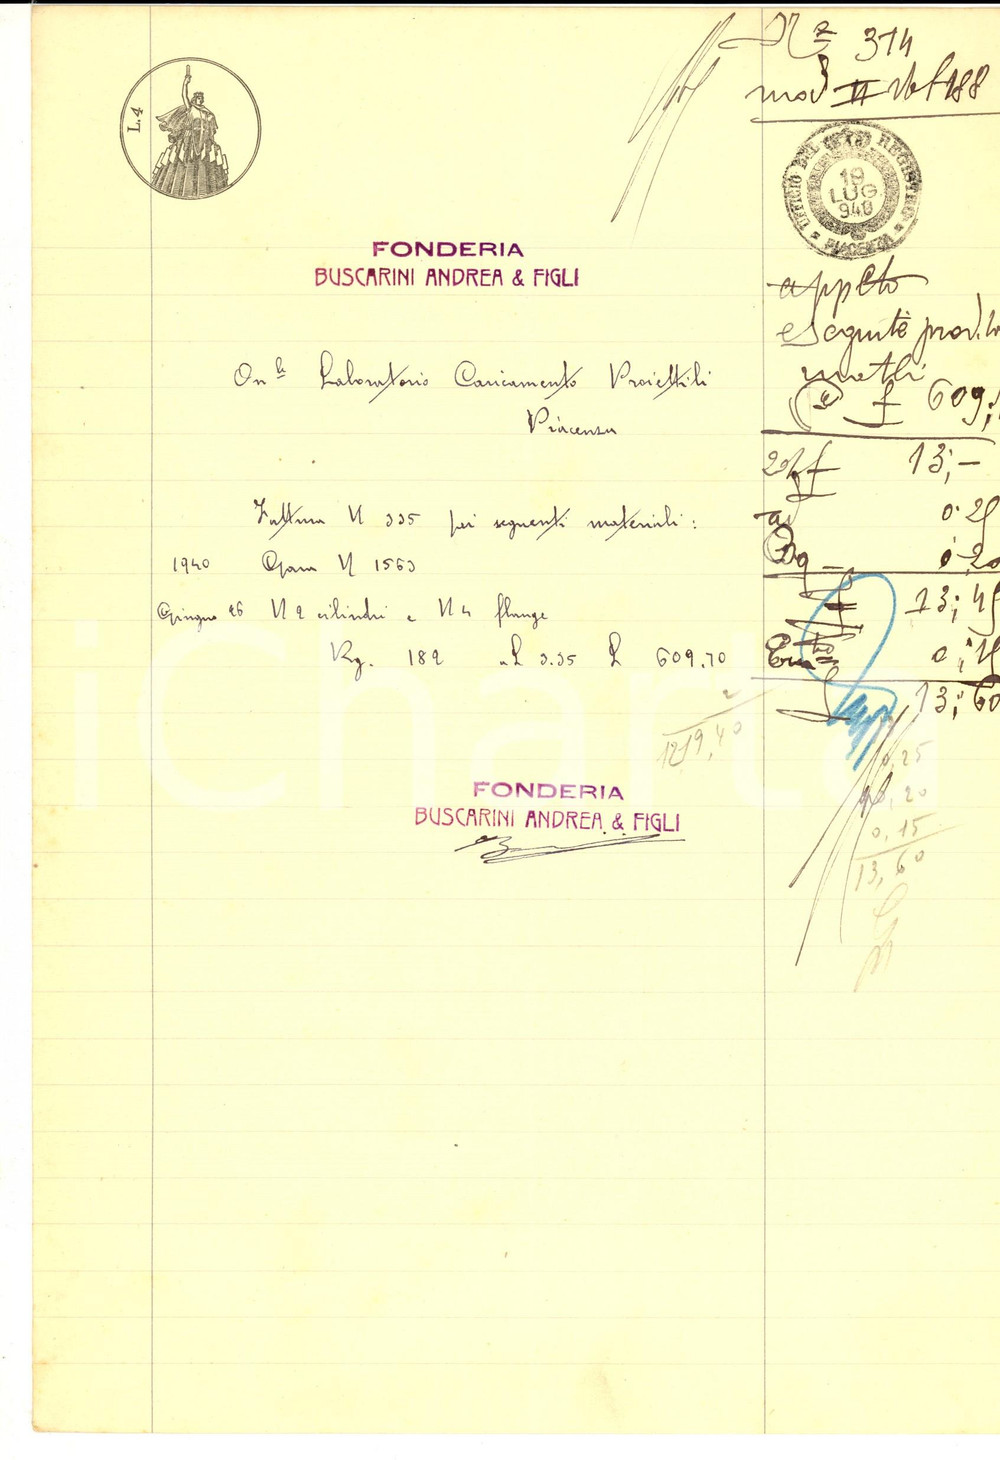 L. 4
Nº 314
mod II Vol 188
UFFICIO DEL REGISTRO
19
LUG.
940
* PIACENZA *
FONDERIA
BUSCARINI ANDREA & FIGLI
On.le Laboratorio Caricamento Proiettili
Piacenza
Fattura N 335 pei seguenti materiali:
1940 Opam N 1563
Giugno 26 N 2 cilindri e N 4 flange
Kg. 182 a L 3.35 L 609.70
1219,40
FONDERIA
BUSCARINI ANDREA & FIGLI
609,
13,-
0.25
0.20
13,45
0,15
13,60
0,25
0,20
0,15
13,60
iCharta